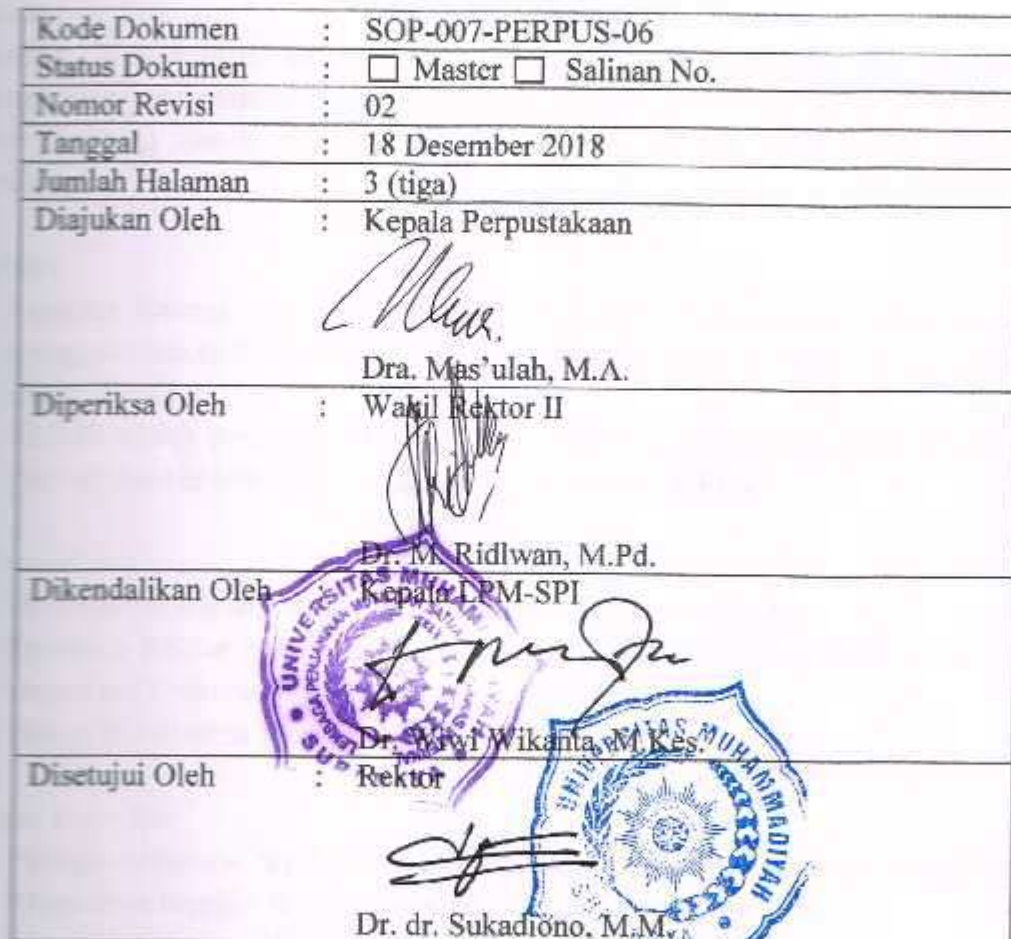 Kode Dokumen : SOP-007-PERPUS-06
Status Dokumen : ☐ Master ☐ Salinan No.
Nomor Revisi : 02
Tanggal : 18 Desember 2018
Jumlah Halaman : 3 (tiga)
Diajukan Oleh : Kepala Perpustakaan
Dra. Mas'ulah, M.A.
Diperiksa Oleh : Wakil Rektor II
Dr. M. Ridlwan, M.Pd.
Dikendalikan Oleh : Kepala LPM-SPI
UNIVERSITAS MUHAM
LEMBAGA PENJAMINAN
Dr. Wiwi Wikanta, M.Kes.
Disetujui Oleh : Rektor
UNIVERSITAS MUHAMMADIYAH
Dr. dr. Sukadiono, M.M.